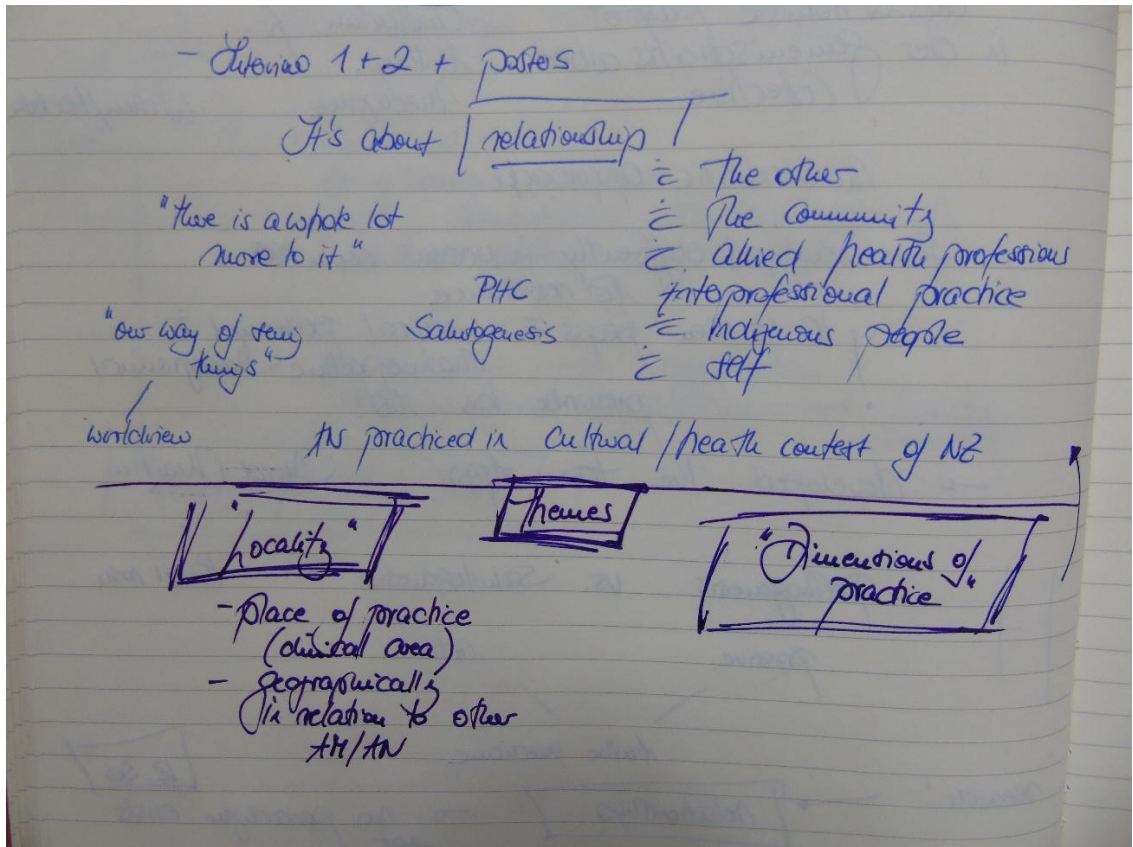 - Interview 1+2 + posters
It's about relationship
c̄ The other
c̄ The community
c̄ allied health professions
Interprofessional practice
c̄ Indigenous people
c̄ self
"there is a whole lot
more to it"
PHC
Salutogenesis
"our way of seeing
things"
worldview
AN practiced in Cultural / heath context of NZ
"Locality"
Themes
"Dimentions of
practice"
- place of practice
(clinical area)
- geographically
in relation to other
AM/AN